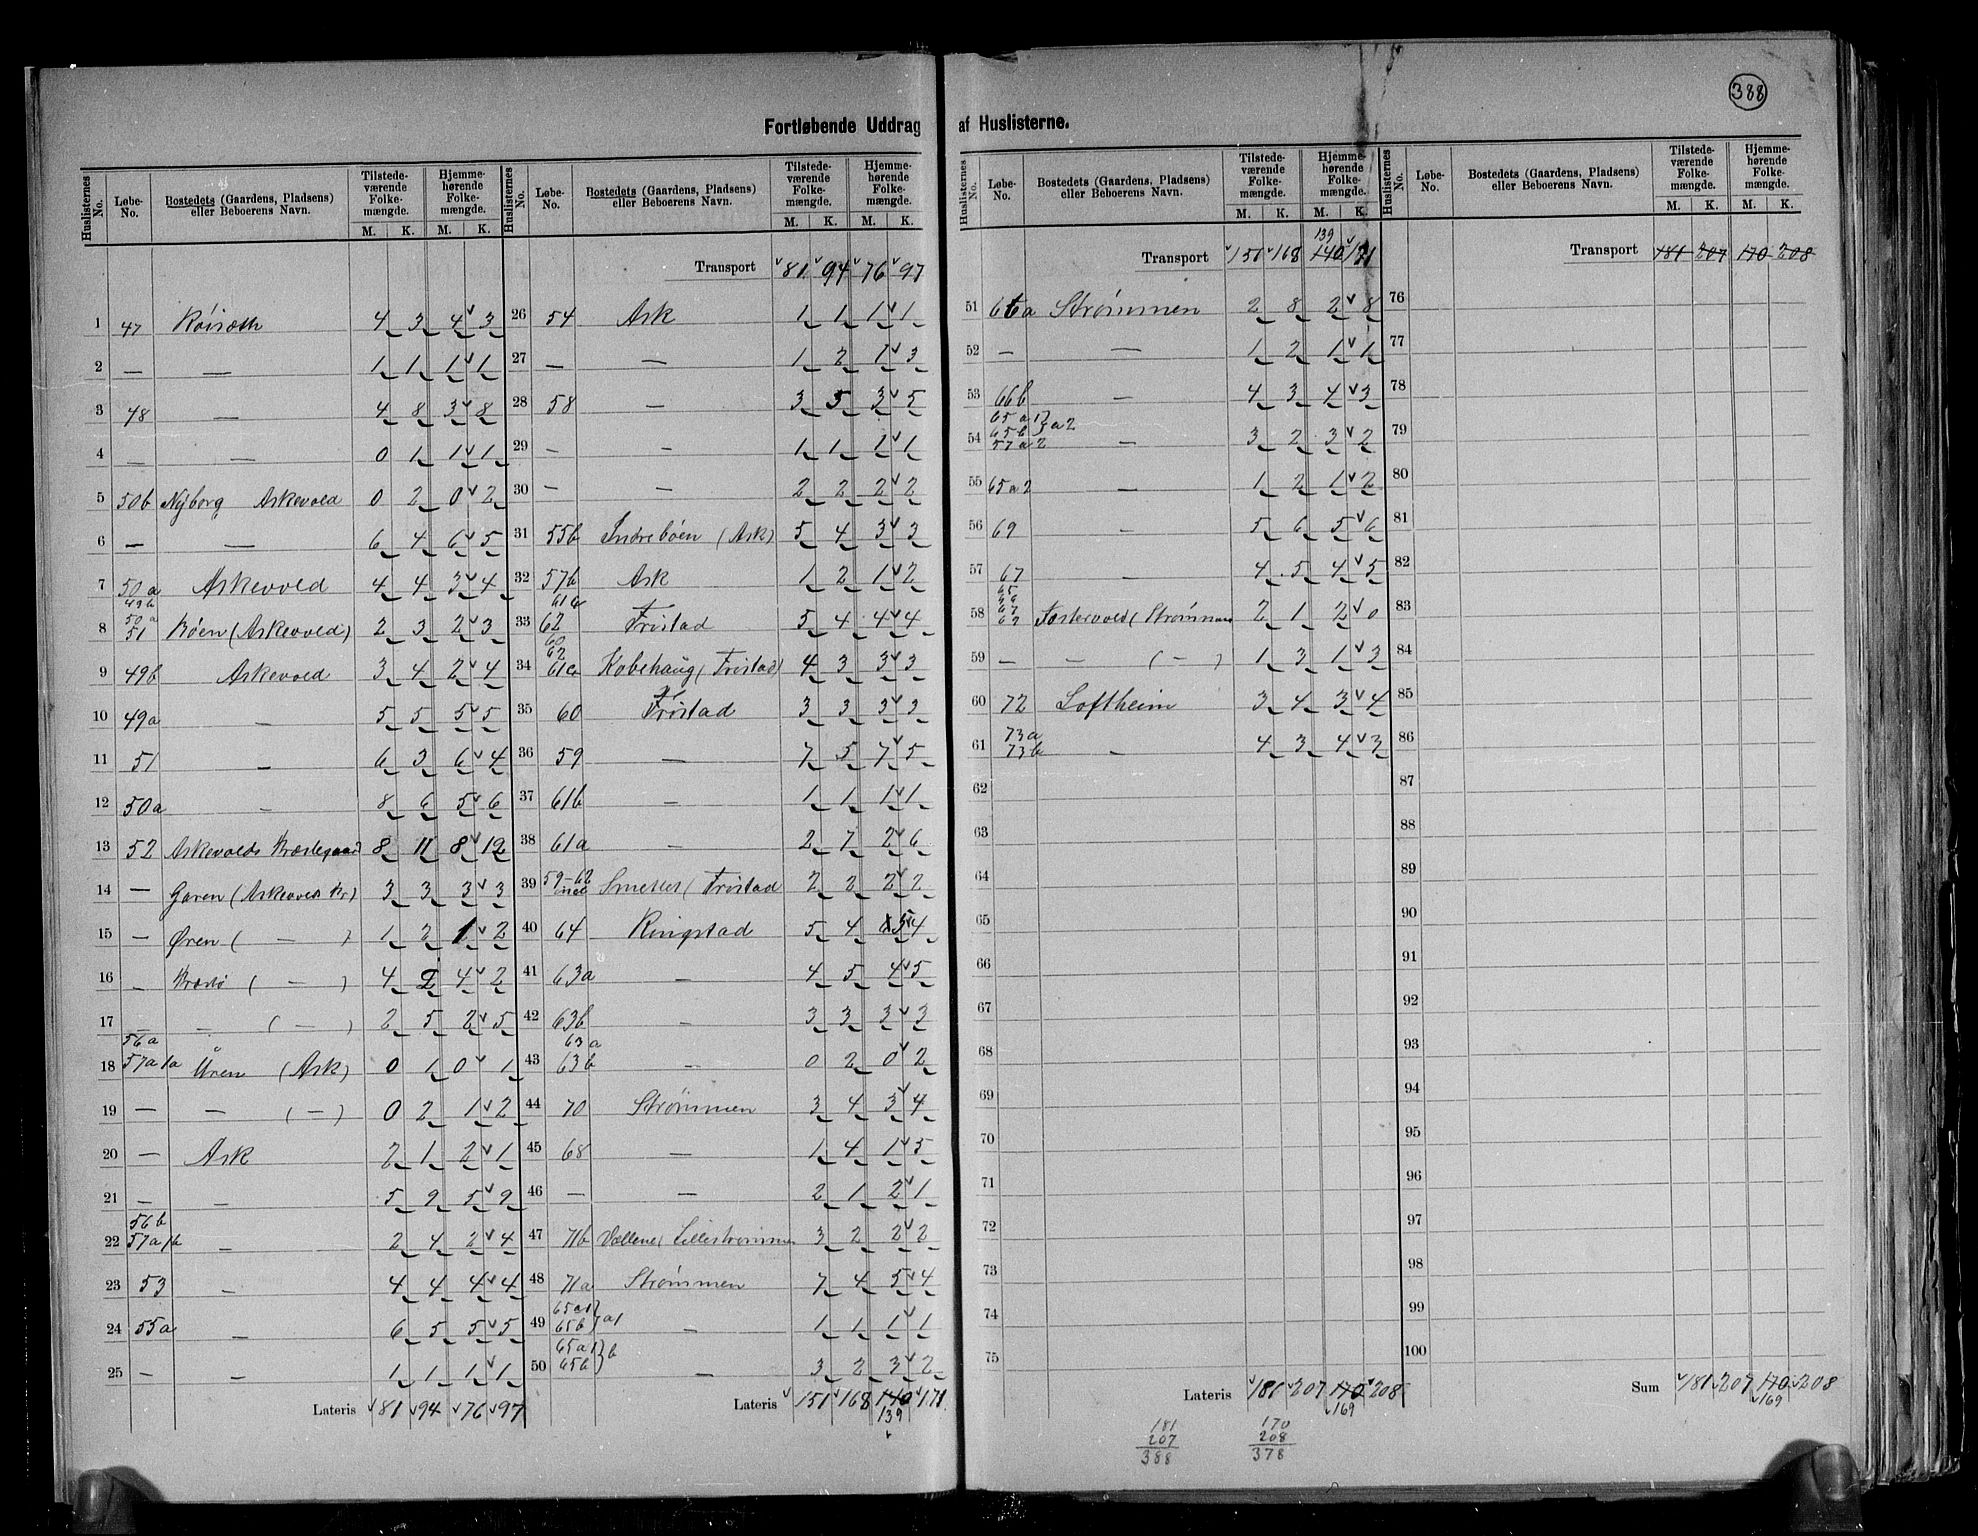 388
Fortløbende Uddrag af Huslisterne.
Huslisternes No. Løbe-No. Bostedets (Gaardens, Pladsens) eller Beboerens Navn. Tilstedeværende Folkemængde. M. K. Hjemmehørende Folkemængde. M. K.
1 47 4 3 4 3
2 — — 1 1 1 1
3 48 — 4 8 3 8
4 — — 0 1 1 1
5 50b Nyborg Askevold 0 2 0 2
6 — — 6 4 6 5
7 50a Askevold 4 4 3 4
8 49b 50a 51 Bøen (Askevold) 2 3 2 3
9 49b Askevold 3 4 2 4
10 49a — 5 5 5 5
11 51 — 6 3 6 4
12 50a — 8 6 5 6
13 52 Askevolds Præstegaard 8 11 8 12
14 — Garen (Askevolds Pr) 3 3 3 3
15 — Øren ( — ) 1 2 1 2
16 — Præstø ( — ) 4 2 4 2
17 — — ( — ) 2 5 2 5
18 56a 57a1a Uren (Ask) 0 1 0 1
19 — — ( — ) 0 2 1 2
20 — Ask 2 1 2 1
21 — — 5 9 5 9
22 56b 57a1b — 2 4 2 4
23 53 — 4 4 4 4
24 55a — 6 5 5 5
25 — — 1 1 1 1
Lateris 81 94 76 97
Huslisternes No. Løbe-No. Bostedets (Gaardens, Pladsens) eller Beboerens Navn. Tilstedeværende Folkemængde. M. K. Hjemmehørende Folkemængde. M. K.
Transport 81 94 76 97
26 54 Ask 1 1 1 1
27 — — 1 2 1 3
28 58 — 3 5 3 5
29 — — 1 1 1 1
30 — — 2 2 2 2
31 55b Indrebøen (Ask) 5 4 3 3
32 57b Ask 1 2 1 2
33 61c 62 Fristad 5 4 4 4
34 60 62 61c Kobehaug (Fristad) 4 3 3 3
35 60 Fristad 3 3 3 3
36 59 — 7 5 7 5
37 61b — 1 1 1 1
38 61a — 2 7 2 6
39 59-62 incl Smellet (Fristad 2 2 2 2
40 64 Ringstad 5 4 5 4
41 63a — 4 5 4 5
42 63b — 3 3 3 3
43 63a 63b — 0 2 0 2
44 70 Strømmen 3 4 3 4
45 68 — 1 4 1 5
46 — — 2 1 2 1
47 71b Vallene( Lillestrømmen 3 2 2 2
48 71a Strømmen 7 4 5 4
49 65a1 65b } a1 — 1 1 1 1
50 65a1 65b } b — 3 2 3 2
Lateris 151 168 140 171
139
Huslisternes No. Løbe-No. Bostedets (Gaardens, Pladsens) eller Beboerens Navn. Tilstedeværende Folkemængde. M. K. Hjemmehørende Folkemængde. M. K.
139
Transport 151 168 140 171
51 66a Strømmen 2 8 2 8
52 — — 1 2 1 1
53 66b — 4 3 4 3
54 65a1 65b } a2 57a2 — 3 2 3 2
55 65a2 — 1 2 1 2
56 69 — 5 6 5 6
57 67 — 4 5 4 5
58 65 66 67 69 Fastervold (Strømmen 2 1 2 0
59 — — ( — ) 1 3 1 3
60 72 Loftheim 3 4 3 4
61 73a 73b — 4 3 4 3
62
63
64
65
66
67
68
69
70
71
72
73
74
75
Lateris 181 207 170 208
169
181
207
388
170
208
378
Huslisternes No. Løbe-No. Bostedets (Gaardens, Pladsens) eller Beboerens Navn. Tilstedeværende Folkemængde. M. K. Hjemmehørende Folkemængde. M. K.
Transport 181 207 170 208
76
77
78
79
80
81
82
83
84
85
86
87
88
89
90
91
92
93
94
95
96
97
98
99
100
Sum 181 207 170 208
169